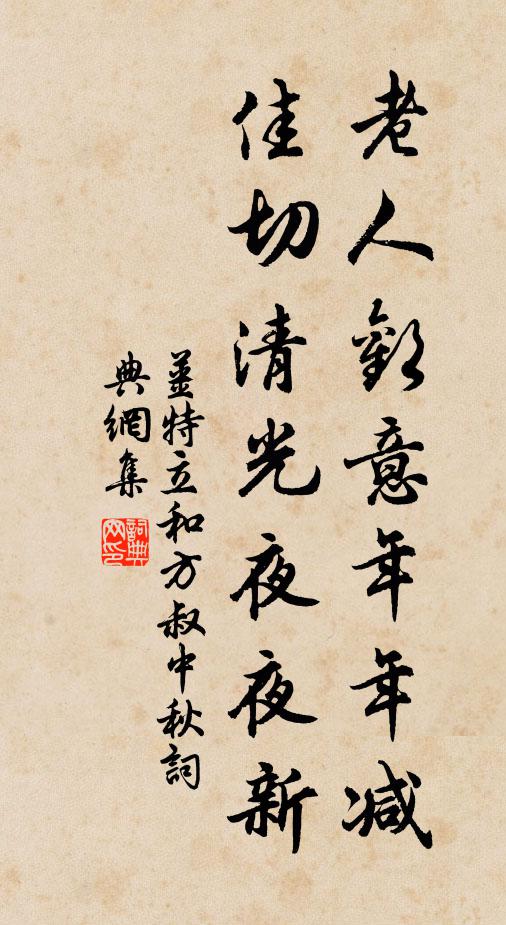 老人歡意年年減
佳切清光夜夜新
薑特立和方叔中秋詞
典網集
詞典网印